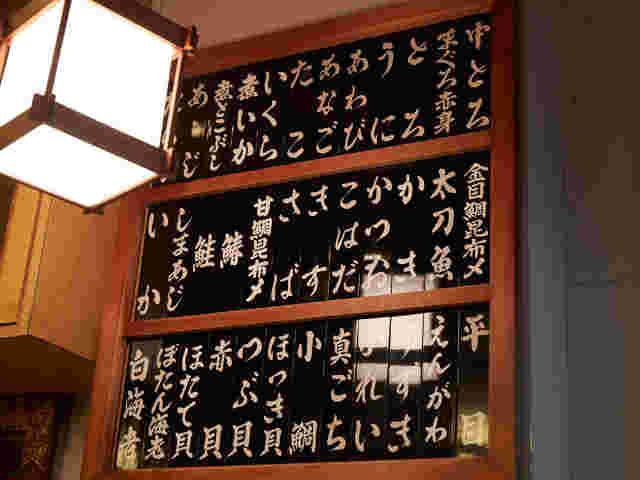 中とろ
まぐろ赤身
とろ
うに
あわび
あなご
たこ
いくら
煮いか
煮とこぶし
あじ
金目鯛昆布〆
太刀魚
かき
かつお
こはだ
きす
さば
甘鯛昆布〆
鰆
鮭
しまあじ
いか
平目
えんがわ
すずき
真ごち
小鯛
ほっき貝
つぶ貝
赤貝
ほたて貝
ぼたん海老
白海老